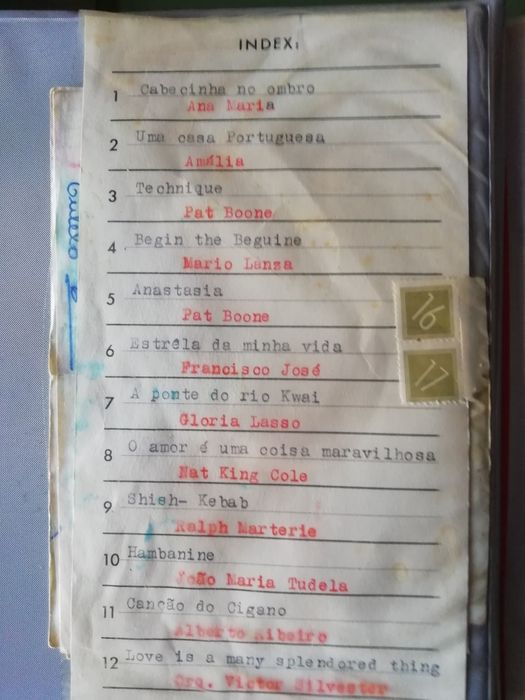 INDEX:
1 Cabecinha no ombro
Ana Maria
2 Uma casa Portuguesa
Amália
3 Technique
Pat Boone
4 Begin the Beguine
Mario Lanza
5 Anastasia
Pat Boone
16
6 Estrêla da minha vida
Francisco José
17
7 A ponte do rio Kwai
Gloria Lasso
8 O amor é uma coisa maravilhosa
Nat King Cole
9 Shish- Kebab
Ralph Marterie
10 Hambanine
João Maria Tudela
11 Canção do Cigano
Alberto Ribeiro
12 Love is a many splendored thing
Orq. Victor Silvester